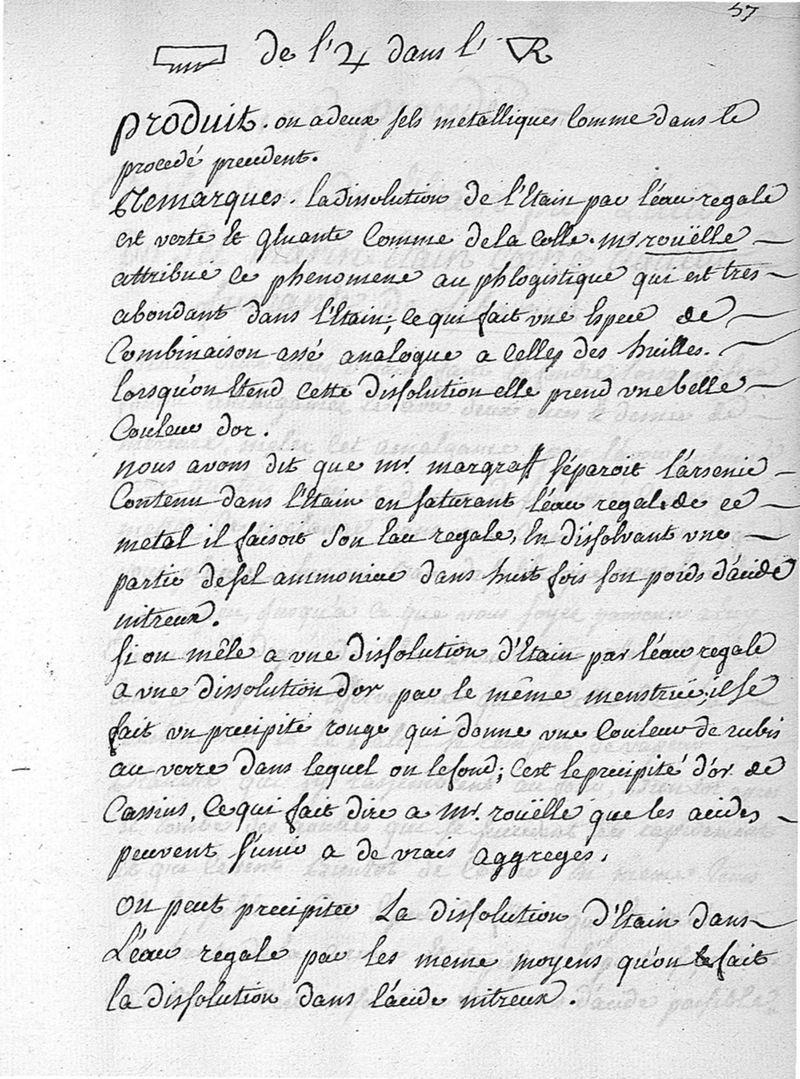 57
de l'♃ dans l' R
produit. on a deux sels metalliques Comme dans le
procedé precedent.
Remarques. la dissolution de l'Etain par l'éau regale
est verte Et gluante Comme de la Colle. mr roüelle
attribue ce phenomene au phlogistique qui est tres
abondant dans l'Etain; ce qui fait une Espece de
Combinaison assé analogue a Celles des huilles.
lorsqu'on Etend Cette dissolution elle prend une belle
Couleur d'or.
nous avons dit que mr. margraff séparoit l'arsenic
Contenu dans l'Etain en saturant l'éau regale de ce
metal il faisoit Son Eau regale, En dissolvant une
partie de sel ammoniac dans huit fois son poids d'acide
nitreux.
si on mêle a une dissolution d'Etain par l'éau regale
a une dissolution d'or par le même menstrüe, il se
fait un precipité rouge qui donne une Couleur de rubis
au verre dans lequel on le fond; C'est le precipité d'or de
Cassius, Ce qui fait dire a Mr. roüelle que les acides
peuvent s'unir a de vrais aggreges.
on peut precipiter La dissolution d'Etain dans
L'éau regale par les meme moyens qu'on fait
la dissolution dans l'acide nitreux.